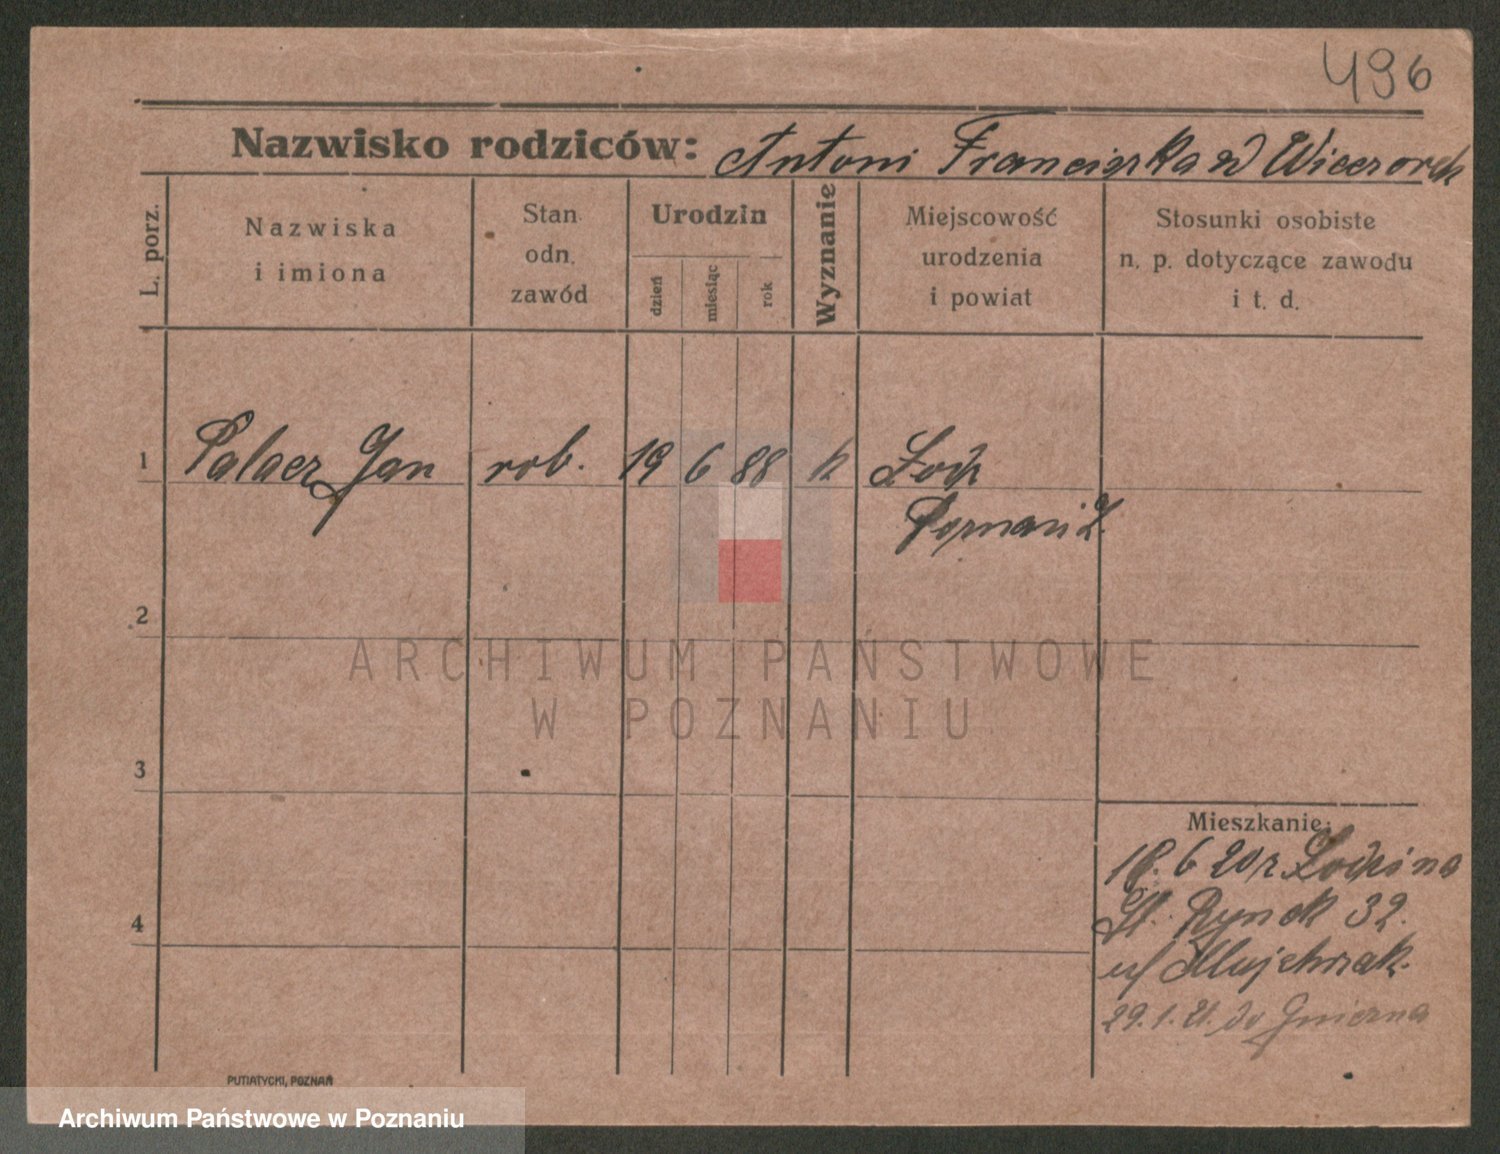 496
Nazwisko rodziców: Antoni Franciszka zd Wieczorek
L. porz.
Nazwiska
i imiona
Stan
odn.
zawód
Urodzin
dzień
miesiąc
rok
Wyznanie
Miejscowość
urodzenia
i powiat
Stosunki osobiste
n. p. dotyczące zawodu
i t. d.
1 Palacz Jan rob. 19 6 88 k Łodź
Poznań Z.
2
ARCHIWUM PAŃSTWOWE
W POZNANIU
3
Mieszkanie:
18. 6 20 r
St. Rynek 32.
4
u/
29. 1. 21. do Gniezna
PUTIATYCKI, POZNAŃ
Archiwum Państwowe w Poznaniu